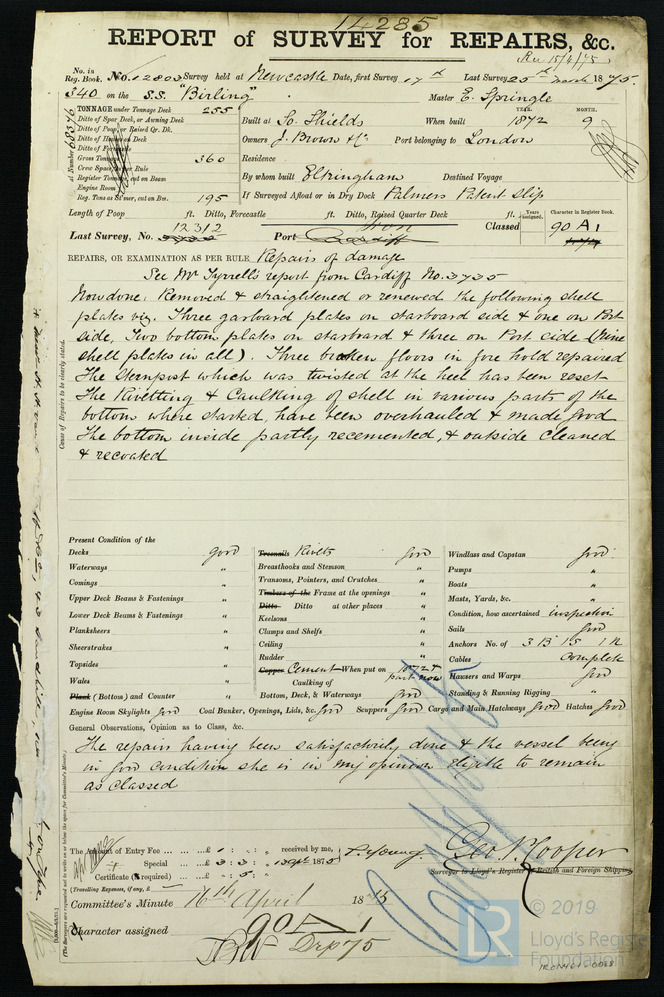 14285
REPORT of SURVEY for REPAIRS, &c.
Rec 15/4/75
No. in Reg. Book. No. 12803 Survey held at Newcastle Date, first Survey 17th Last Survey 25th March 1875
340 on the S.S. "Birling" Master E. Springle
TONNAGE under Tonnage Deck 255
Ditto of Spar Deck, or Awning Deck
Ditto of Poop, or Raised Qr. Dk.
Ditto of Houses on Deck
Ditto of Forecastle
Gross Tonnage 360
Crew Space as per Rule
Register Tonnage, cut on Beam
Engine Room
Reg. Tons as St'mer, cut on Bm. 195
YEAR. MONTH.
Built at So. Shields When built 1872 9
Owners J. Brown & Co Port belonging to London
Residence
By whom built Eltringham Destined Voyage
If Surveyed Afloat or in Dry Dock Palmers Patent Slip
Length of Poop ft. Ditto, Forecastle ft. Ditto, Raised Quarter Deck ft.
Years assigned. Character in Register Book.
Iron
Classed 90 A 1
12312
Last Survey, No. 3735 Port Cardiff
REPAIRS, OR EXAMINATION AS PER RULE Repairs of damage
See Mr Tyrrell's report from Cardiff No. 3735
Now done: Removed & straightened or renewed the following shell
plates viz. Three garboard plates on starboard side & one on Port
side, Two bottom plates on starboard & three on Port side (Nine
shell plates in all). Three broken floors in fore hold repaired
The Sternpost which was twisted at the heel has been reset
The Rivetting & Caulking of shell in various parts of the
bottom where started, have been overhauled & made good
The bottom inside partly recemented, & outside cleaned
& recoated
Cause of Repairs to be clearly stated.
Present Condition of the
Decks good
Waterways "
Comings "
Upper Deck Beams & Fastenings "
Lower Deck Beams & Fastenings "
Planksheers "
Sheerstrakes "
Topsides "
Wales "
Plank (Bottom) and Counter "
Treenails Rivets good
Breasthooks and Stemson "
Transoms, Pointers, and Crutches "
Timbers of the Frame at the openings "
Ditto Ditto at other places "
Keelsons "
Clamps and Shelfs "
Ceiling "
Rudder "
Copper Cement When put on 1872 & part now
Caulking of
Bottom, Deck, & Waterways good
Windlass and Capstan good
Pumps "
Boats "
Masts, Yards, &c. "
Condition, how ascertained inspection
Sails good
Anchors No. of 3 B 1 S 1 K
Cables Complete
Hawsers and Warps good
Standing & Running Rigging "
Engine Room Skylights good Coal Bunker, Openings, Lids, &c. good Scuppers good Cargo and Main Hatchways good Hatches good
General Observations, Opinion as to Class, &c.
The repairs having been satisfactorily done & the vessel being
in good condition she is in my opinion eligible to remain
as classed
The Amount of Entry Fee ... £ : : received by me,
Special ... £ 3 : 3 : 1875 P. Young
Certificate (if required) ... £ : 5 :
(Travelling Expenses, if any, £
Geo. N. Cooper
Surveyor to Lloyd's Register of British and Foreign Shipping.
Committee's Minute 16th April 1875
Character assigned 90 A 1
Drp 75
(The Surveyors are requested not to write on or below the space for Committee's Minute.)
© 2019
LR Lloyd's Register Foundation